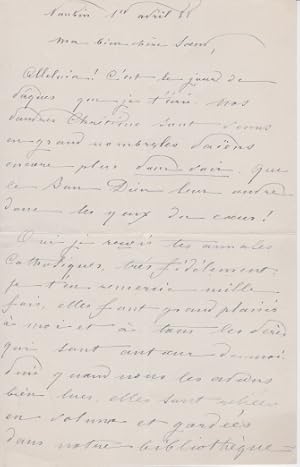 Nankin 1er avril 88
ma bien chère Sœur,
Alleluia! C'est le jour de
Pâques que je t'écris. Nos
Chrétiens sont venus
en grand nombre
encore plus d'ans soir. Que
le Bon Dieu leur
dans les yeux du cœur!
Oui je reçois les annales
Catholiques, très fidèlement,
je t'en remercie mille
fois, elles font grand plaisir
à moi et à tous les
qui sont autour de moi
puis quand nous les avons
bien lues, elles sont reliées
en volume et gardées
dans notre bibliothèque-